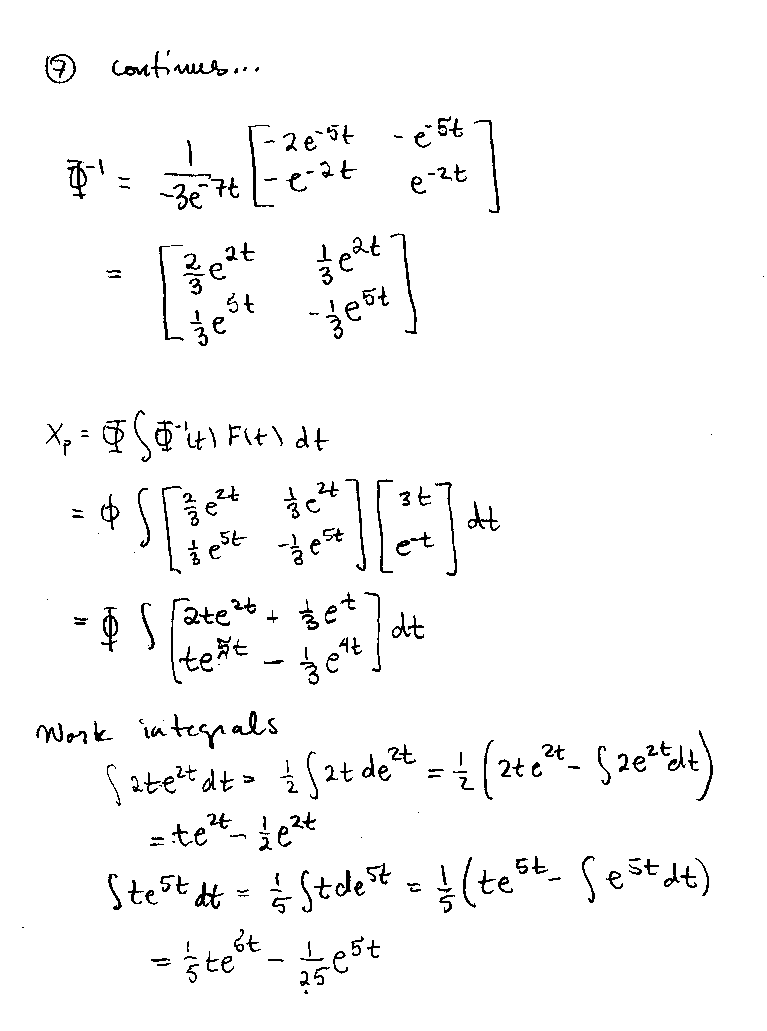 ⑰ continues...
Φ⁻¹ = 1/(-3e^{-7t}) [ -2e^{-5t}   -e^{-5t} ; -e^{-2t}   e^{-2t} ]
= [ 2/3 e^{2t}   1/3 e^{2t} ; 1/3 e^{5t}   -1/3 e^{5t} ]
X_p = Φ ∫ Φ⁻¹(t) F(t) dt
= Φ ∫ [ 2/3 e^{2t}   1/3 e^{2t} ; 1/3 e^{5t}   -1/3 e^{5t} ] [ 3t ; e^{-t} ] dt
= Φ ∫ [ 2te^{2t} + 1/3 e^{t} ; te^{5t} - 1/3 e^{4t} ] dt
Work integrals
∫ 2te^{2t} dt = 1/2 ∫ 2t de^{2t} = 1/2 (2te^{2t} - ∫ 2e^{2t} dt)
= te^{2t} - 1/2 e^{2t}
∫ te^{5t} dt = 1/5 ∫ t de^{5t} = 1/5 (te^{5t} - ∫ e^{5t} dt)
= 1/5 te^{5t} - 1/25 e^{5t}